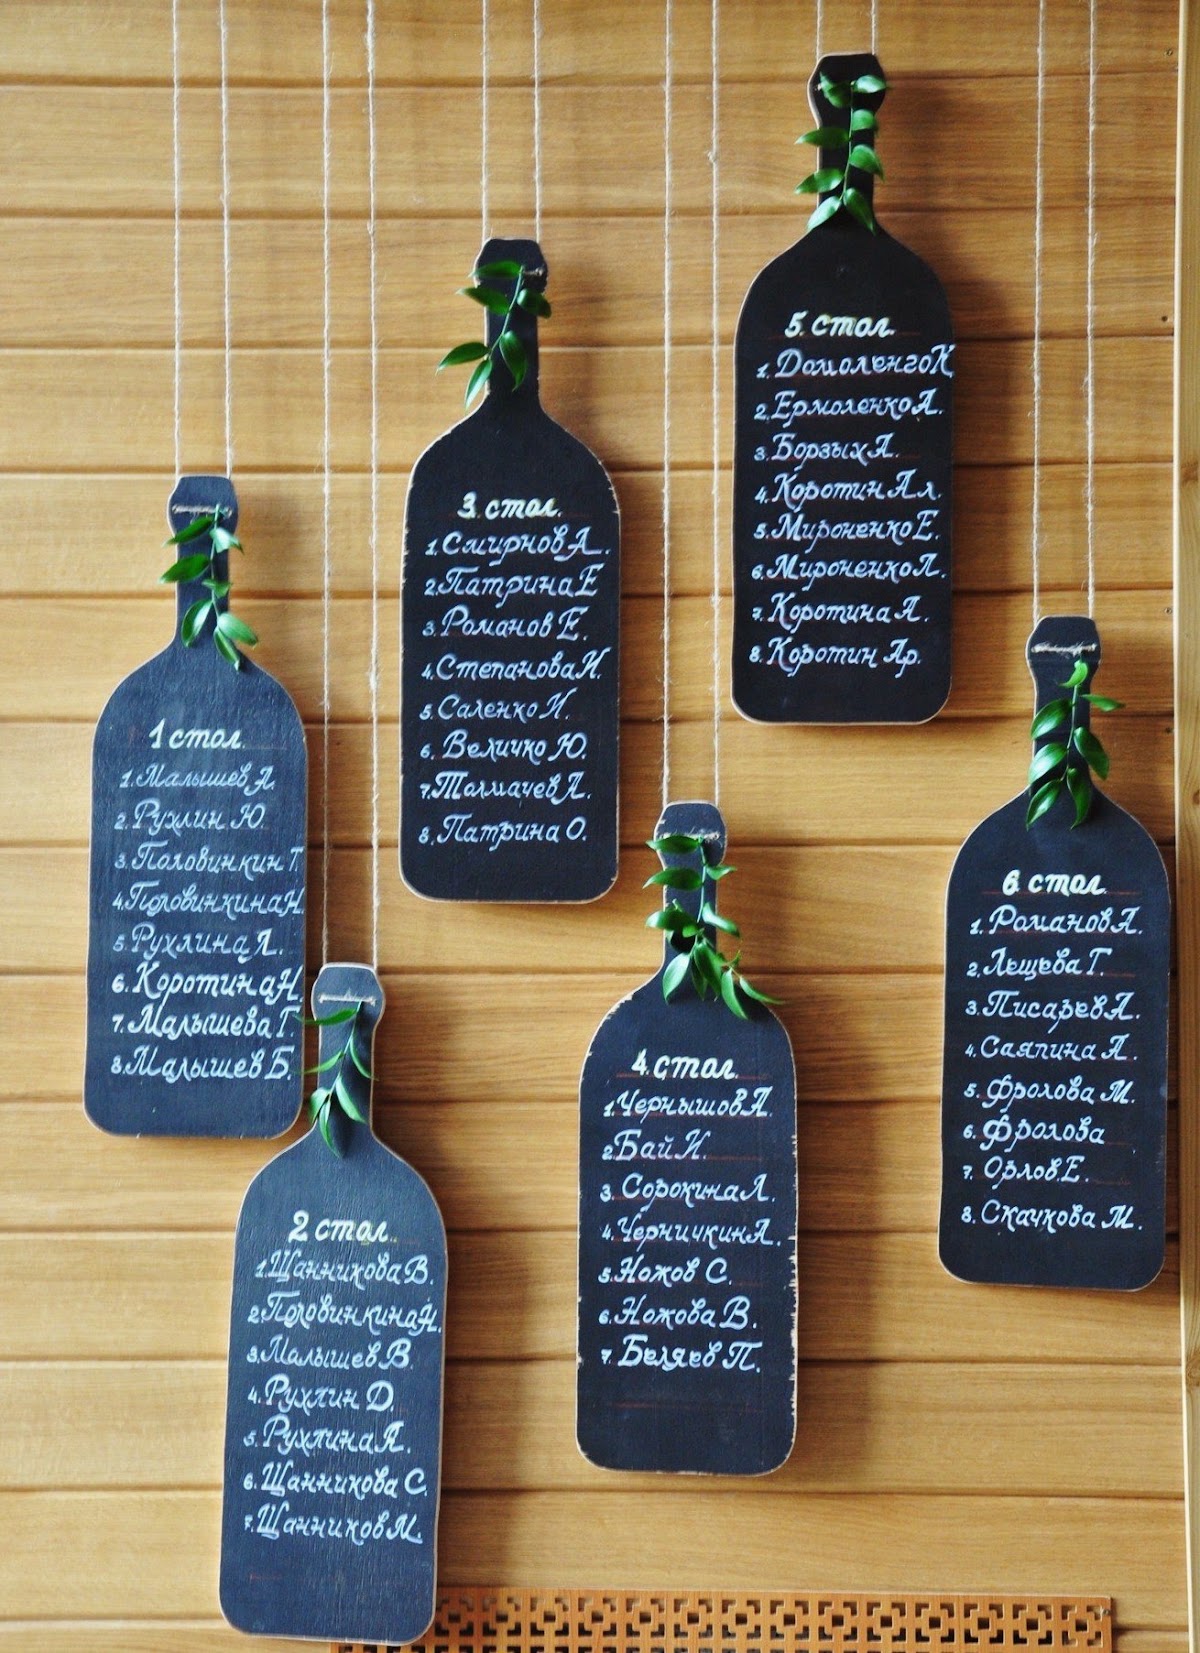 1 стол.
1. Малышев А.
2. Рухлин Ю.
3. Половинкин Т.
4. Половинкина Н.
5. Рухлина Л.
6. Коротина Н.
7. Малышева Г.
8. Малышев Б.
2 стол.
1. Щанникова В.
2. Половинкина Н.
3. Малышев В.
4. Рухлин Д.
5. Рухлина А.
6. Щанникова С.
7. Щанников М.
3. стол.
1. Смирнов А.
2. Патрина Е
3. Романов Е.
4. Степанова И.
5. Саленко И.
6. Величко Ю.
7. Толмачев А.
8. Патрина О.
4. стол.
1. Чернышов А.
2. Бай И.
3. Сорокина Л.
4. Черничкин А.
5. Ножов С.
6. Ножова В.
7. Беляев П.
5. стол.
1. Домоленго К
2. Ермоленко А.
3. Борзых А.
4. Коротин Ал.
5. Мироненко Е.
6. Мироненко Л.
7. Коротина А.
8. Коротин Ар.
6. стол.
1. Романов А.
2. Лещева Г.
3. Писарев А.
4. Саяпина А.
5. Фролова М.
6. Фролова
7. Орлов Е.
8. Скачкова М.